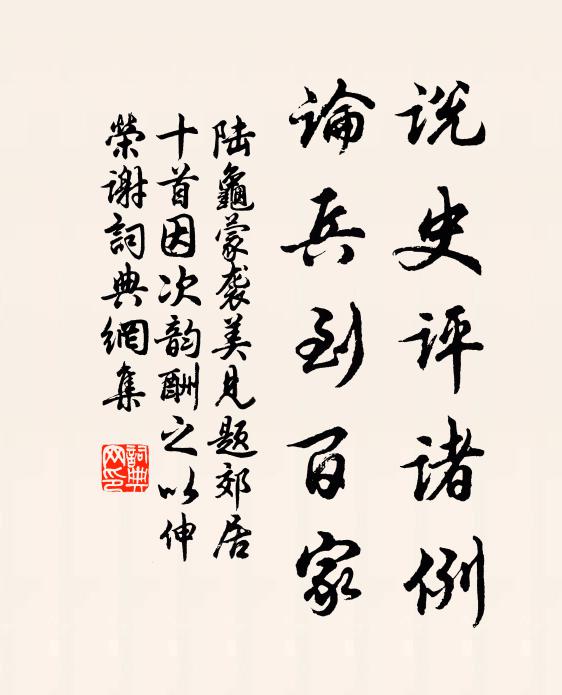 说史评诸例
論兵到百家
陆龜蒙袭美見题郊居
十首因次韵酬之以伸
榮谢詞典網集
詞典
网印